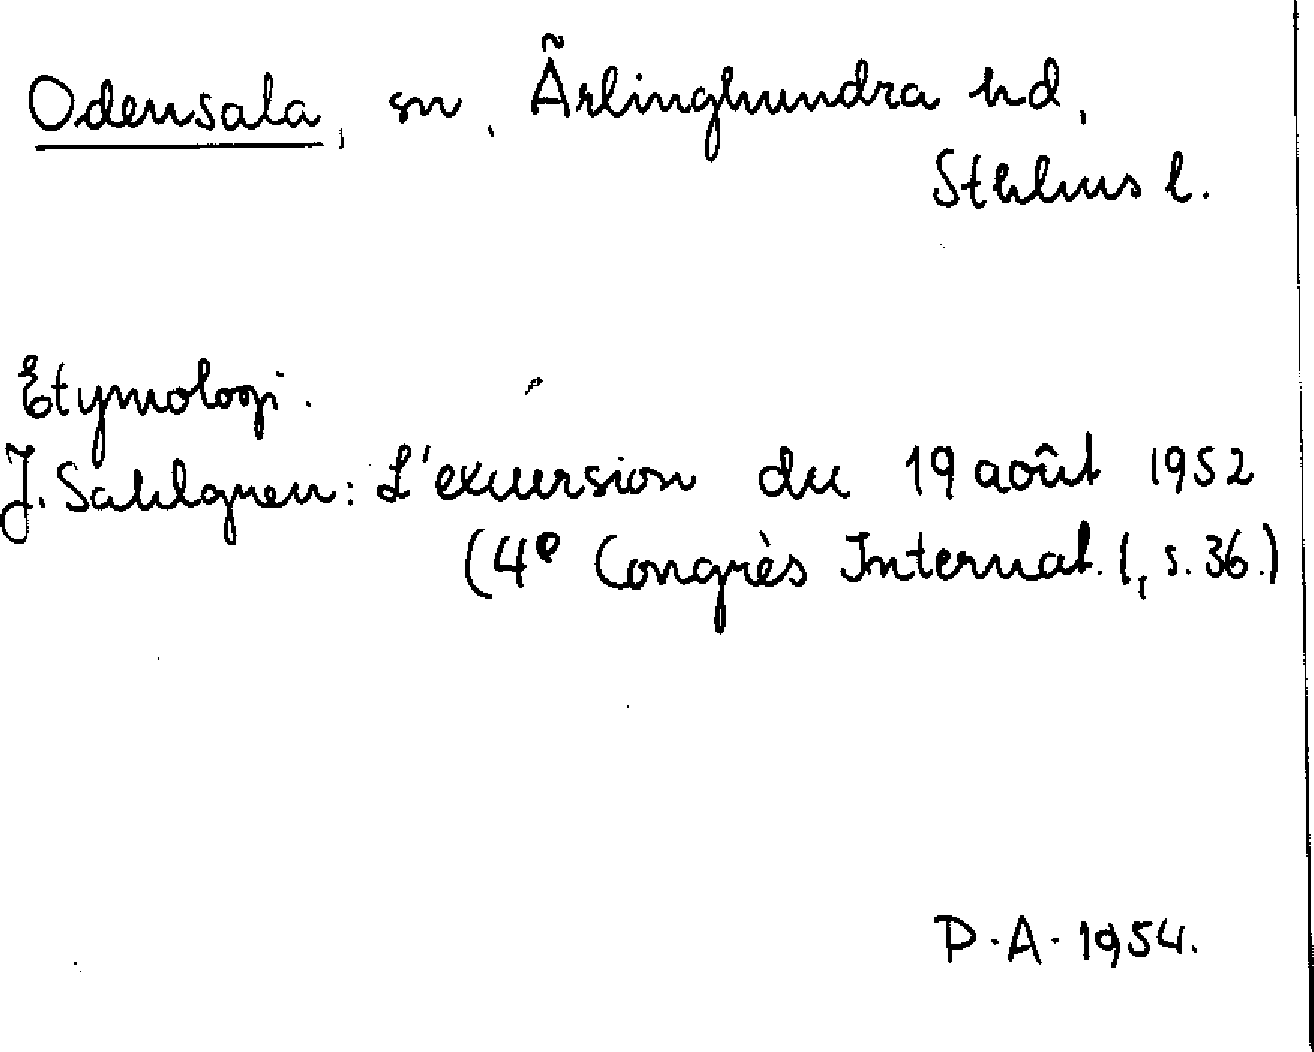 Odensala, sn, Ärlinghundra hd,
Sthlms l.
Etymologi.
J. Sahlgren: L'excursion du 19 août 1952
(4e Congrès Internat. (, s. 36.)
P.A. 1954.